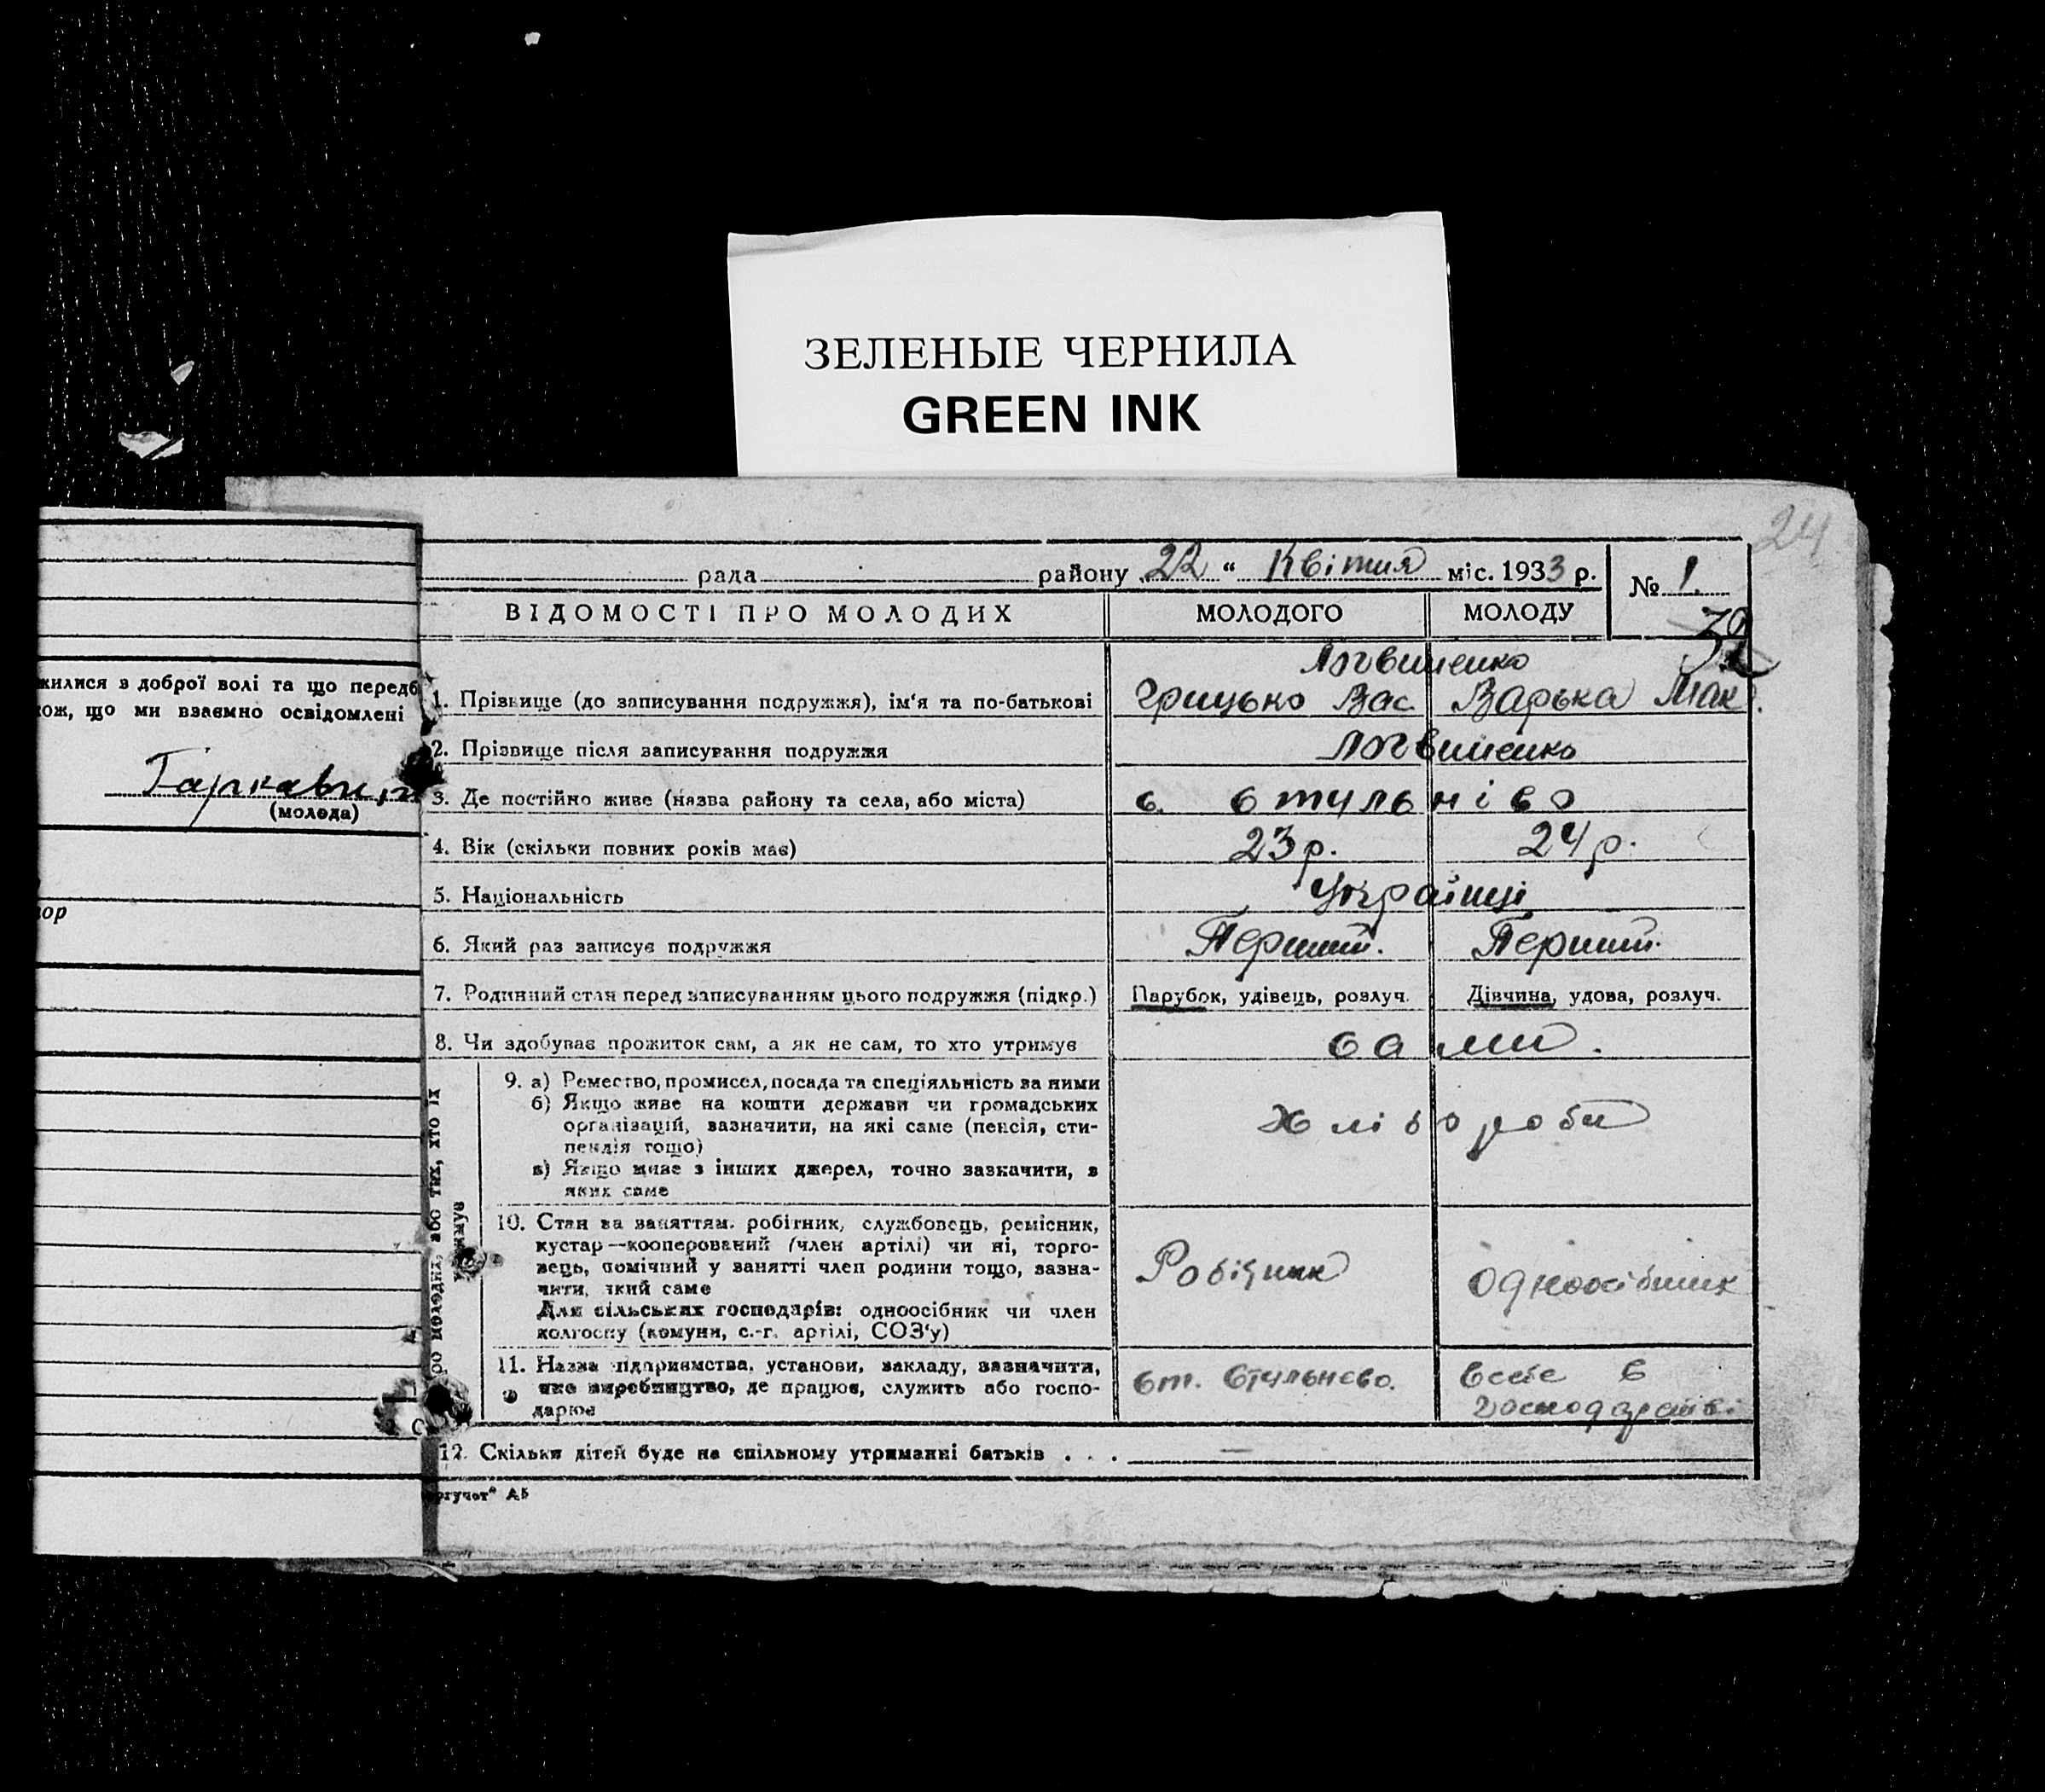 ЗЕЛЕНЫЕ ЧЕРНИЛА
GREEN INK
24
жилися з доброї волі та що передб
кож, що ми взаємно освідомлені
(молода)
рада района району „22“ Квітня міс. 1933 р.
№ 1.
32
ВІДОМОСТІ ПРО МОЛОДИХ МОЛОДОГО МОЛОДУ
Логвиненко
1. Прізвище (до записування подружжя), ім‘я та по-батькові Грицько Вас. Варька Мак.
2. Прізвище після записування подружжя Логвиненко
3. Де постійно живе (назва району та села, або міста) с. Стульнєво
4. Вік (скільки повних років має) 23 р. 24 р.
5. Національність Українці
6. Який раз записує подружжя Перший. Перший.
7. Родинний стан перед записуванням цього подружжя (підкр.) Парубок, удівець, розлуч. Дівчина, удова, розлуч.
8. Чи здобуває прожиток сам, а як не сам, то хто утримує сами.
9. а) Ремество, промисел, посада та спеціяльність за ними
б) Якщо живе на кошти держави чи громадських
організацій, зазначити, на які саме (пенсія, сти-
пендія тощо)
в) Якщо живе з інших джерел, точно зазначити, з
яких саме
Хлібороби
10. Стан за заняттям: робітник, службовець, ремісник,
кустар—кооперований (член артілі) чи ні, торго-
вець, помічний у занятті член родини тощо, зазна-
чити, який саме
Для сільських господарів: одноосібник чи член
колгоспу (комуни, с.-г. артілі, СОЗ‘у)
Робітник одноосібник
11. Назва підприємства, установи, закладу, зазначити,
яке виробництво, де працює, служить або госпо-
дарює
ст. Стульнево. в себе в
господарстві
12. Скільки дітей буде на спільному утриманні батьків . . . —